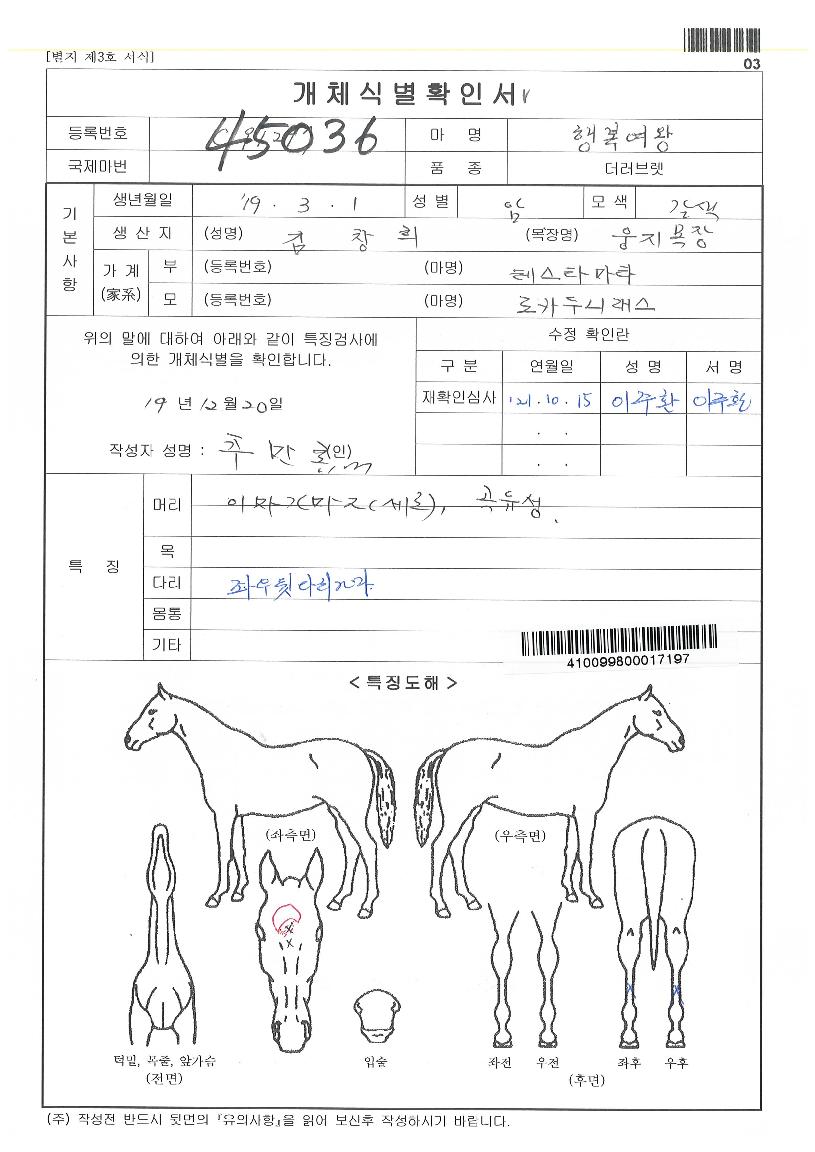 [별지 제3호 서식]
03
개체식별확인서
등록번호 45036 마 명 행복여왕
국제마번 품 종 더러브렛
기본사항
생년월일 '19 . 3 . 1 성 별 암 모 색 갈색
생 산 지 (성명) 김 창 희 (목장명) 웅지목장
가 계 (家系) 부 (등록번호) (마명) 테스타마타
모 (등록번호) (마명) 로카두시래스
위의 말에 대하여 아래와 같이 특징검사에
의한 개체식별을 확인합니다.
19 년 12 월 20 일
작성자 성명 : (인)
수정 확인란
구 분 연월일 성 명 서 명
재확인심사 '21. 10. 15 이주환 이주환
. .
. .
특 징
머리 이마가마2(세로), 곡유성.
목
다리 좌우뒷다리
몸통
기타
410099800017197
< 특징도해 >
(좌측면) (우측면)
턱밑, 목줄, 앞가슴
(전면)
입술
좌전 우전 좌후 우후
(후면)
(주) 작성전 반드시 뒷면의 『유의사항』을 읽어 보신후 작성하시기 바랍니다.